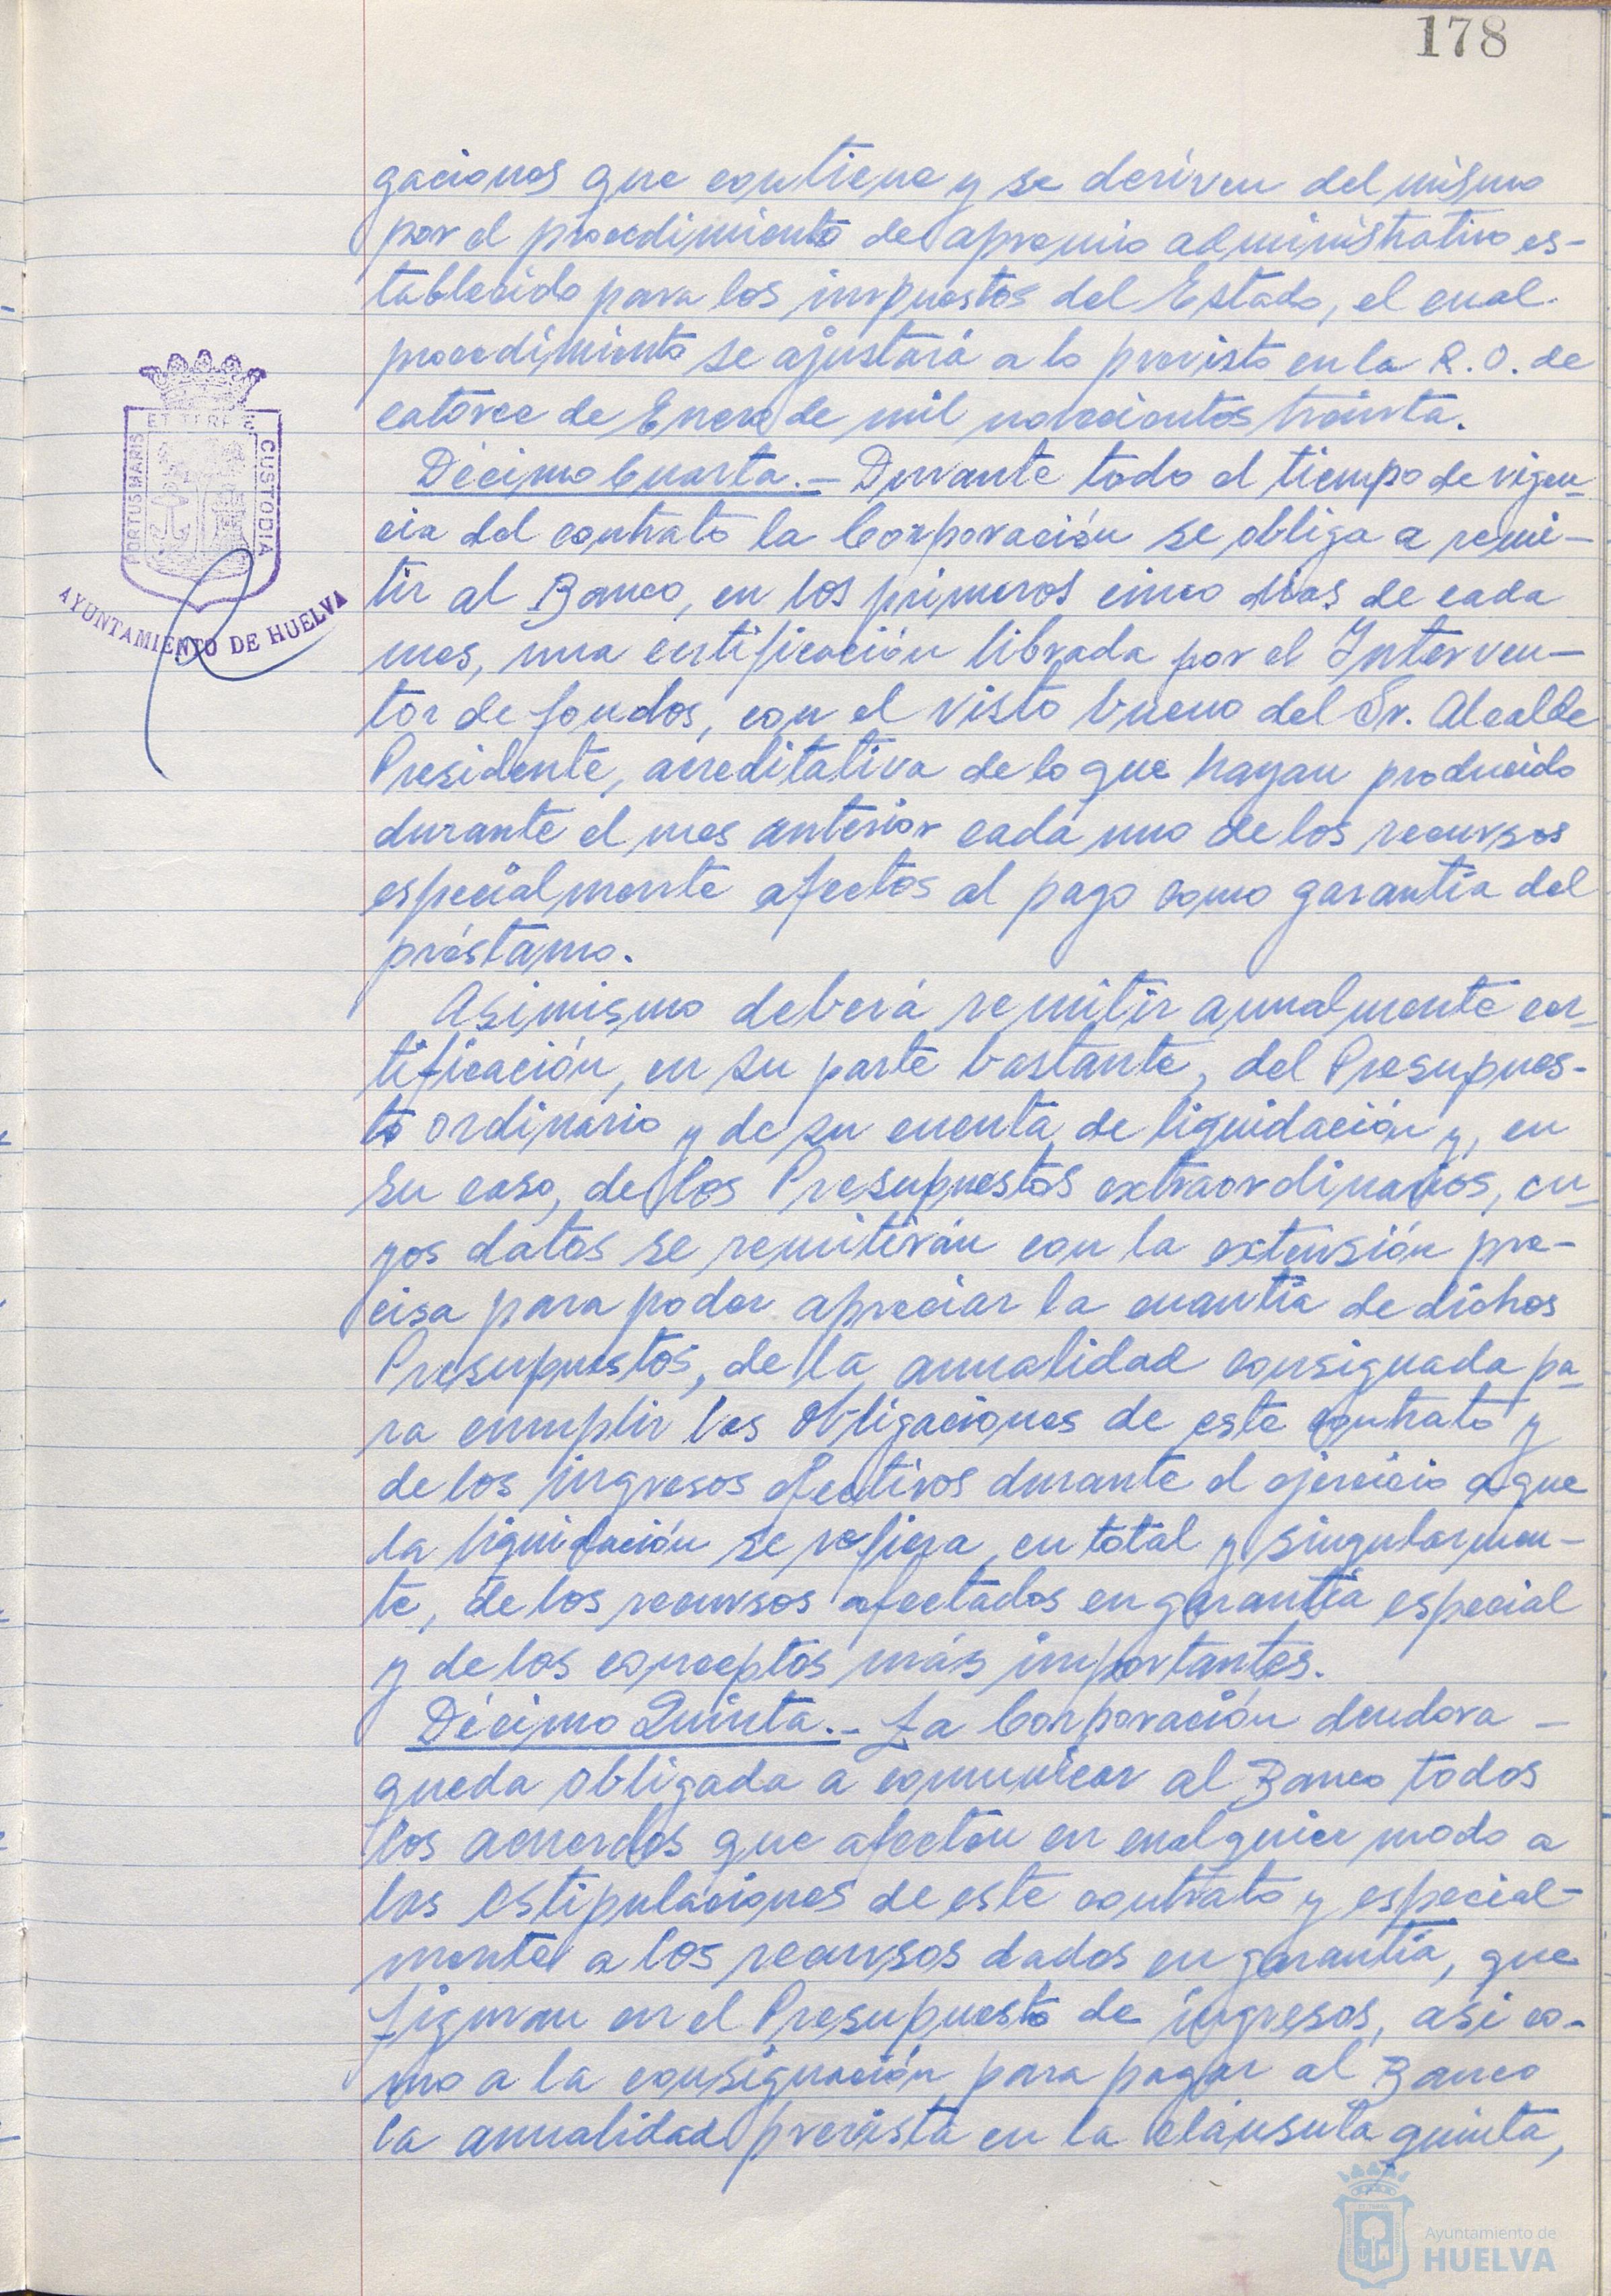 178
gaciones que contiene y se deriven del mismo
por el procedimiento de apremio administrativo es-
tablecido para los impuestos del Estado, el cual
procedimiento se ajustará a lo previsto en la R.O. de
catorce de Enero de mil novecientos treinta.
Décimo Cuarta.- Durante todo el tiempo de vigen-
cia del contrato la Corporación se obliga a remi-
tir al Banco, en los primeros cinco dias de cada
mes, una certificación librada por el Interven-
tor de fondos, con el visto bueno del Sr. Alcalde
Presidente, acreditativa de lo que hayan producido
durante el mes anterior cada uno de los recursos
especialmente afectos al pago como garantía del
préstamo.
Asimismo deberá remitir anualmente cer-
tificación, en su parte bastante, del Presupues-
to ordinario y de su cuenta de liquidación y, en
su caso, de los Presupuestos extraordinarios, cu-
yos datos se remitirán con la extensión pre-
cisa para poder apreciar la cuantía de dichos
Presupuestos, de la anualidad consignada pa-
ra cumplir las obligaciones de este contrato y
de los ingresos efectivos durante el ejercicio a que
la liquidación se refiera, en total y singularmen-
te, de los recursos afectados en garantía especial
y de los conceptos más importantes.
Décimo Quinta.- La Corporación deudora -
queda obligada a comunicar al Banco todos
los acuerdos que afecten en cualquier modo a
las estipulaciones de este contrato y especial-
mente a los recursos dados en garantía, que
figuran en el Presupuesto de ingresos, asi co-
mo a la consignación para pagar al Banco
la anualidad prevista en la cláusula quinta,
PORTUS MARIS
ET TERRE
CUSTODIA
AYUNTAMIENTO DE HUELVA
Ayuntamiento de
HUELVA